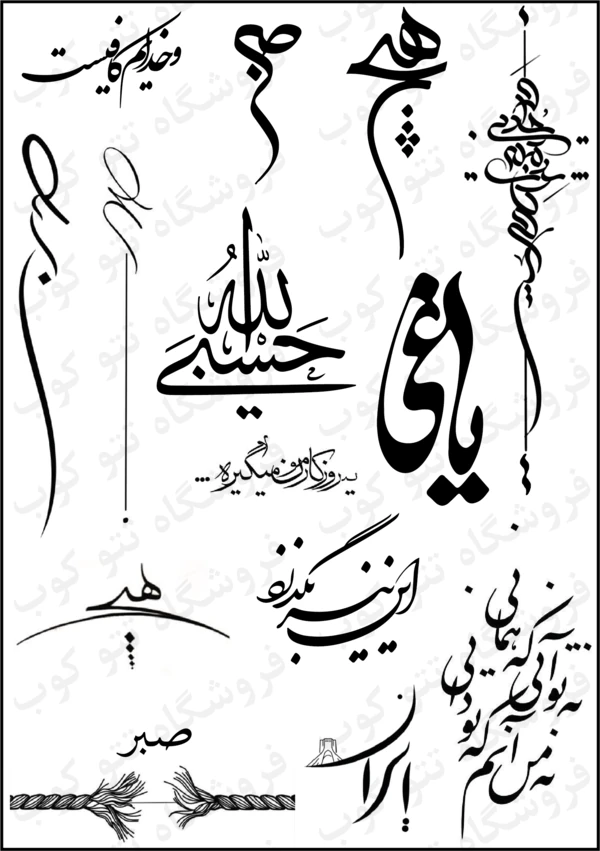 و خدایم کافیست
صبر
هیچ
حسبي الله
یاغی
یه روز کارمون میگیره ...
هیچ
این نیز بگذرد
نه تو آنی که همانی
نه من آنم که تو دانی
صبر
ایران
فروشگاه تتو کوب